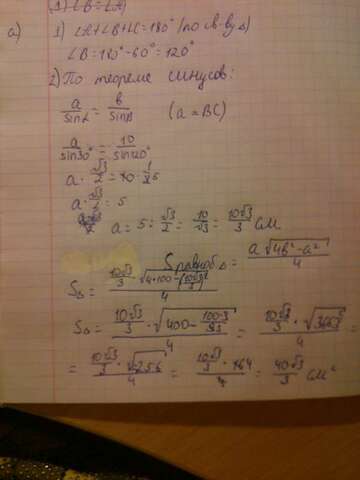 (1) ∠B = ∠A)
а) 1) ∠A+∠B+∠C=180° (по св-ву Δ)
∠B = 180°-60° = 120°
2) По теореме синусов:
a/sinα = b/sinβ (a = BC)
a/sin30° = 10/sin120°
a · √3/2 = 10 · 1/2
a · √3/2 = 5
a = 5 : √3/2 = 10/√3 = 10√3/3 см
Sравноб.Δ = a√4b²-a²/4
SΔ = 10√3/3 · √4·100-(10√3/3)²/4
SΔ = 10√3/3 · √400-100·3/4 =
= 10√3/3 · √256/4 = 10√3/3 · 164/4 = 40√3/3 см²